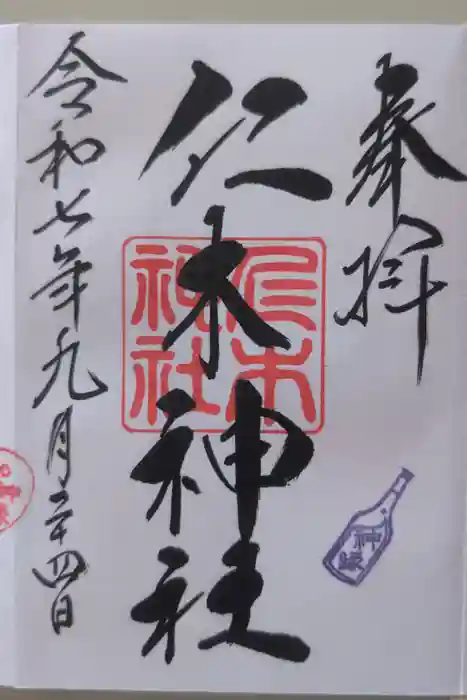 奉拝
仁木神社
仁木
神社
令和七年九月二十四日
神縁